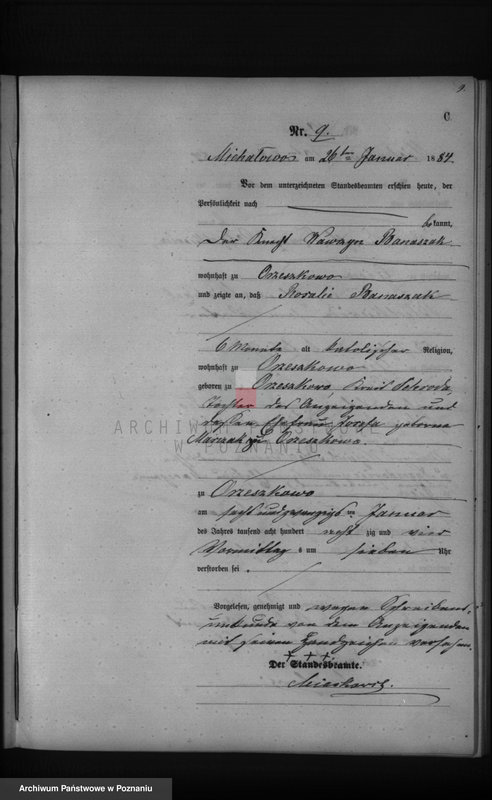 9.
C.
Nr. 9.
Michałowo am 26ten Januar 1884.
Vor dem unterzeichneten Standesbeamten erschien heute, der
Persönlichkeit nach
bekannt,
Der Knecht Wawrzyn Banaszak
wohnhaft zu Orzeszkowo
und zeigte an, daß Rosalie Banaszak
6 Monate alt katolischer Religion,
wohnhaft zu Orzeszkowo
geboren zu Orzeszkowo Kreis Schroda,
Tochter des Anzeigenden und
dessen Ehefrau Jozefa geborene
ARCHIWUM PAŃSTWOWE
W POZNANIU
zu Orzeszkowo
zu Orzeszkowo
am sechsundzwanzigsten Januar
des Jahres tausend acht hundert acht zig und vier
Vormittag s um sieben Uhr
verstorben sei.
Vorgelesen, genehmigt und wegen Schreibens-
unkunde von dem Anzeigenden
mit seinem Handzeichen versehen.
+ + +
Der Standesbeamte.
Archiwum Państwowe w Poznaniu